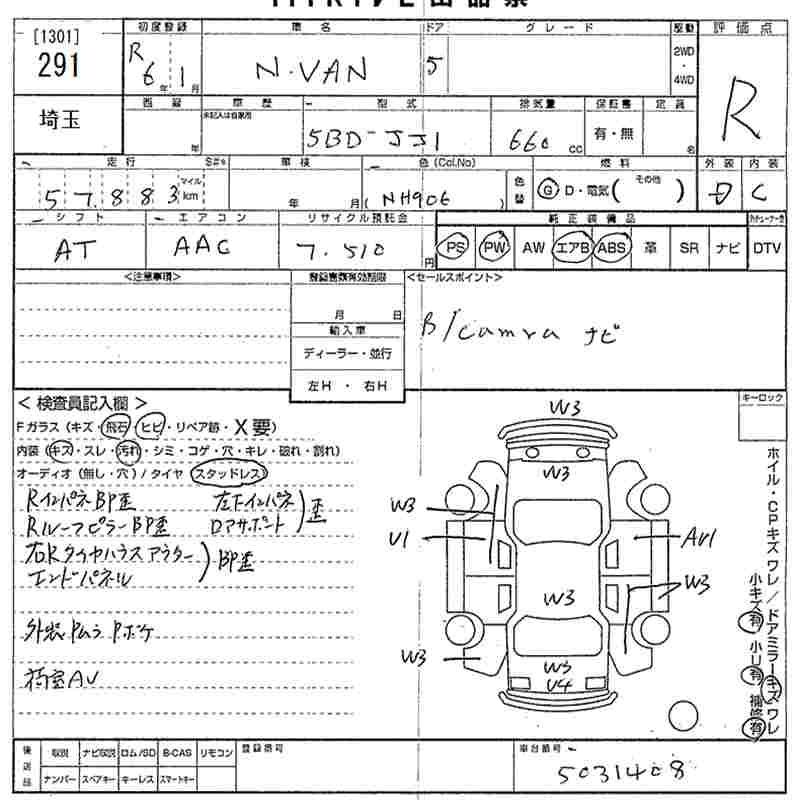 [1301]
291
埼玉
初度登録
R 6年 1月
車名
N-VAN
ドア
5
グレード
駆動
2WD
・
4WD
評価点
R
車歴
未記入は自家用
型式
5BD-JJ1
排気量
660 cc
保証書
有・無
定員
名
走行
57,883 マイル km
S#*
車検
年 月
色(Col,No)
( NH906 )
色替
燃料
G D・電気( その他 )
外装
D
内装
C
シフト
AT
エアコン
AAC
リサイクル預託金
7.510 円
純正装備品
PS PW AW エアB ABS 革 SR ナビ DTV
<注意事項>
登録書類有効期限
月 日
輸入車
ディーラー・並行
左H ・ 右H
<セールスポイント>
B/camra ナビ
< 検査員記入欄 >
Fガラス(キズ・飛石・ヒビ・リペア跡・X要)
内装(キズ・スレ・汚れ・シミ・コゲ・穴・キレ・破れ・割れ)
オーディオ(無し・穴)/タイヤ(スタッドレス)
RインパネBP歪 左下インパネ
RルーフピラーBP歪 Dアサポート )歪
右Rタイヤハウスアウター
エンドパネル )BP歪
外装Pムラ Pボケ
荷室AV
W3
W3
W3
U1
AU1
W3
W3
W3
W3
U4
キーロック
ホイル・CPキズ ワレ/ドアミラーキズ ワレ
小キズ有 小U有 補修有
後送品
取説 ナビ取説 ロム/SD B-CAS リモコン
ナンバー スペアキー キーレス スマートキー
登録番号
車台番号
5031408